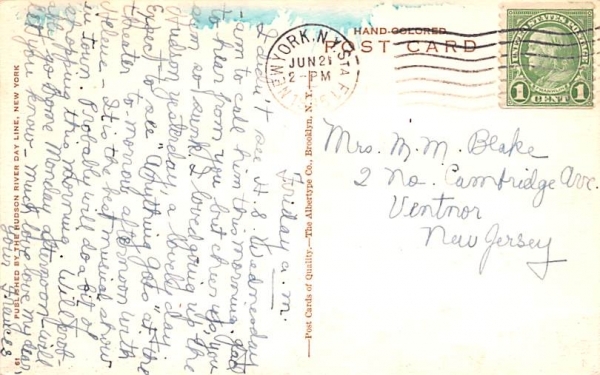 HAND-COLORED
POST CARD
NEW YORK, N.Y. STA.
JUN 21
2-PM
UNITED STATES POSTAGE
FRANKLIN
1 CENT 1
Mrs. M. M. Blake
2 No. Cambridge Ave.
Ventnor
New Jersey
—Post Cards of Quality.—The Albertype Co., Brooklyn, N. Y.
61 PUBLISHED BY THE HUDSON RIVER DAY LINE, NEW YORK
Friday a.m.
I didn't see H. S. Wednesday
to call him this morning. Glad
to hear from you but chees, you
sure so sunk. I loved going up the
Hudson yesterday a lovely day.
Expect to see "Anything Goes" at the
theater to-morrow afternoon with
- It is the best musical show
in town. Probably will do a bit of
shopping this morning. Will prob-
ably go home Monday afternoon will
let you know. Much love my dear
Your Frances